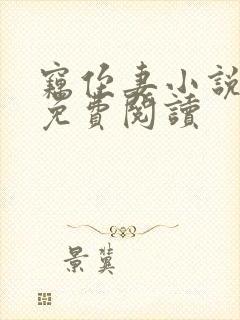 竊他妻小說
免費閱讀
景冀